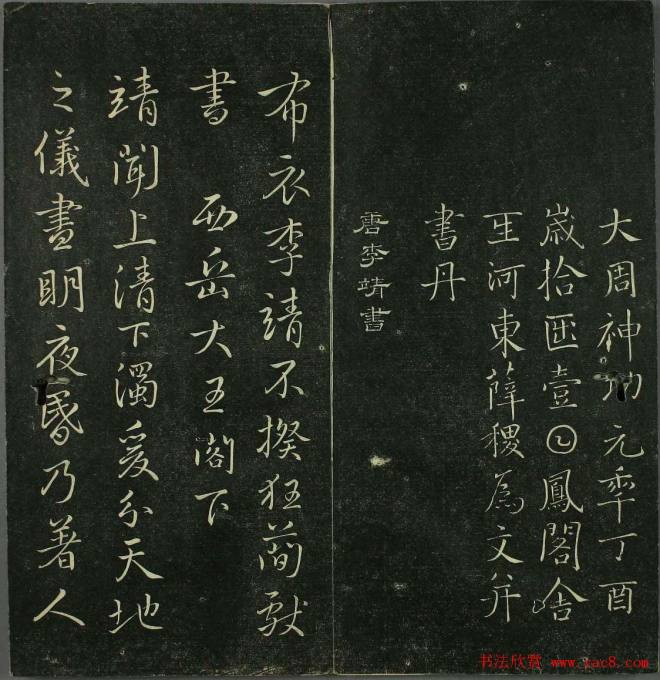 大周神功元𠡦丁酉
歲拾𠥱壹𡆠鳳閣舍
𤯔河東薛稷為文并
書丹
唐李靖書
布衣李靖不揆狂簡獻
書 西岳大王閣下
靖聞上清下濁爰分天地
之儀晝明夜昬乃著人
书法欣赏 www.yac8.com